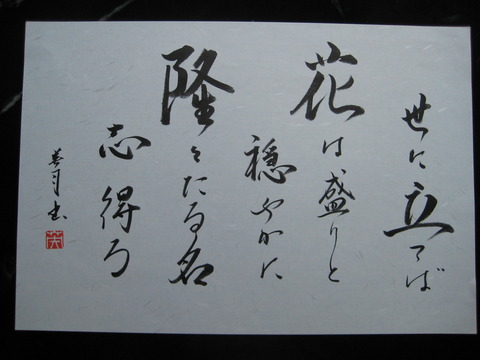 世に立てば
花は盛りと
穏やかに
隆々たる名
志得る